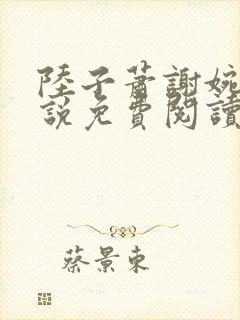 陸子蕭謝婉
說免費閱讀
蔡景東